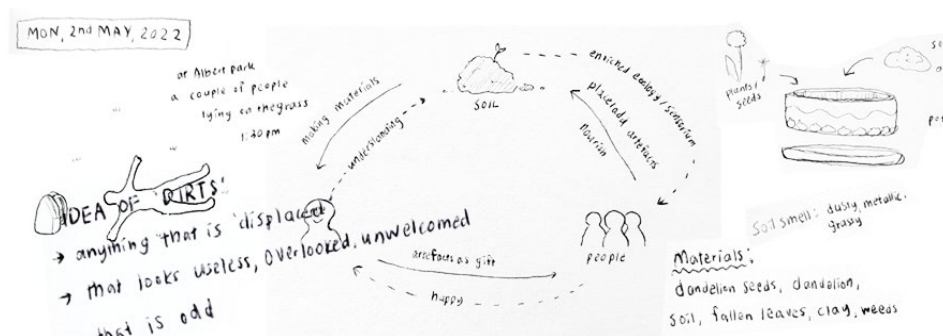 MON, 2nd MAY, 2022
at Albert park
a couple of people
lying on the grass
1:30 pm
IDEA OF DIRTS:
→ anything that is displaced
→ that looks useless, overlooked, unwelcomed
that is odd
making materials
understanding
SOIL
enriched ecology/sensorium
artefacts
nourish
PEOPLE
artefacts as gift
happy
plants/
seeds
so
Soil smell: dusty, metallic,
grassy
Materials:
dandelion seeds, dandelion,
soil, fallen leaves, clay, weeds